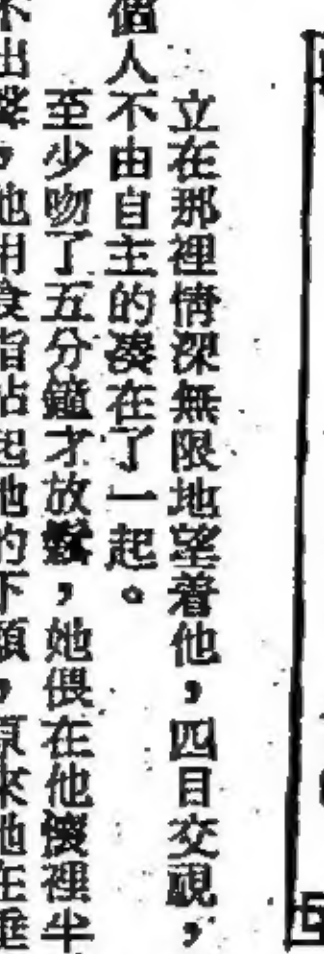 立在那裡情深無限地望着他，四目交視，
個人不由自主的湊在了一起。
至少吻了五分鐘才放鬆，她偎在他懷裡半
不出聲，他用食指站起她的下頤，原來她在垂